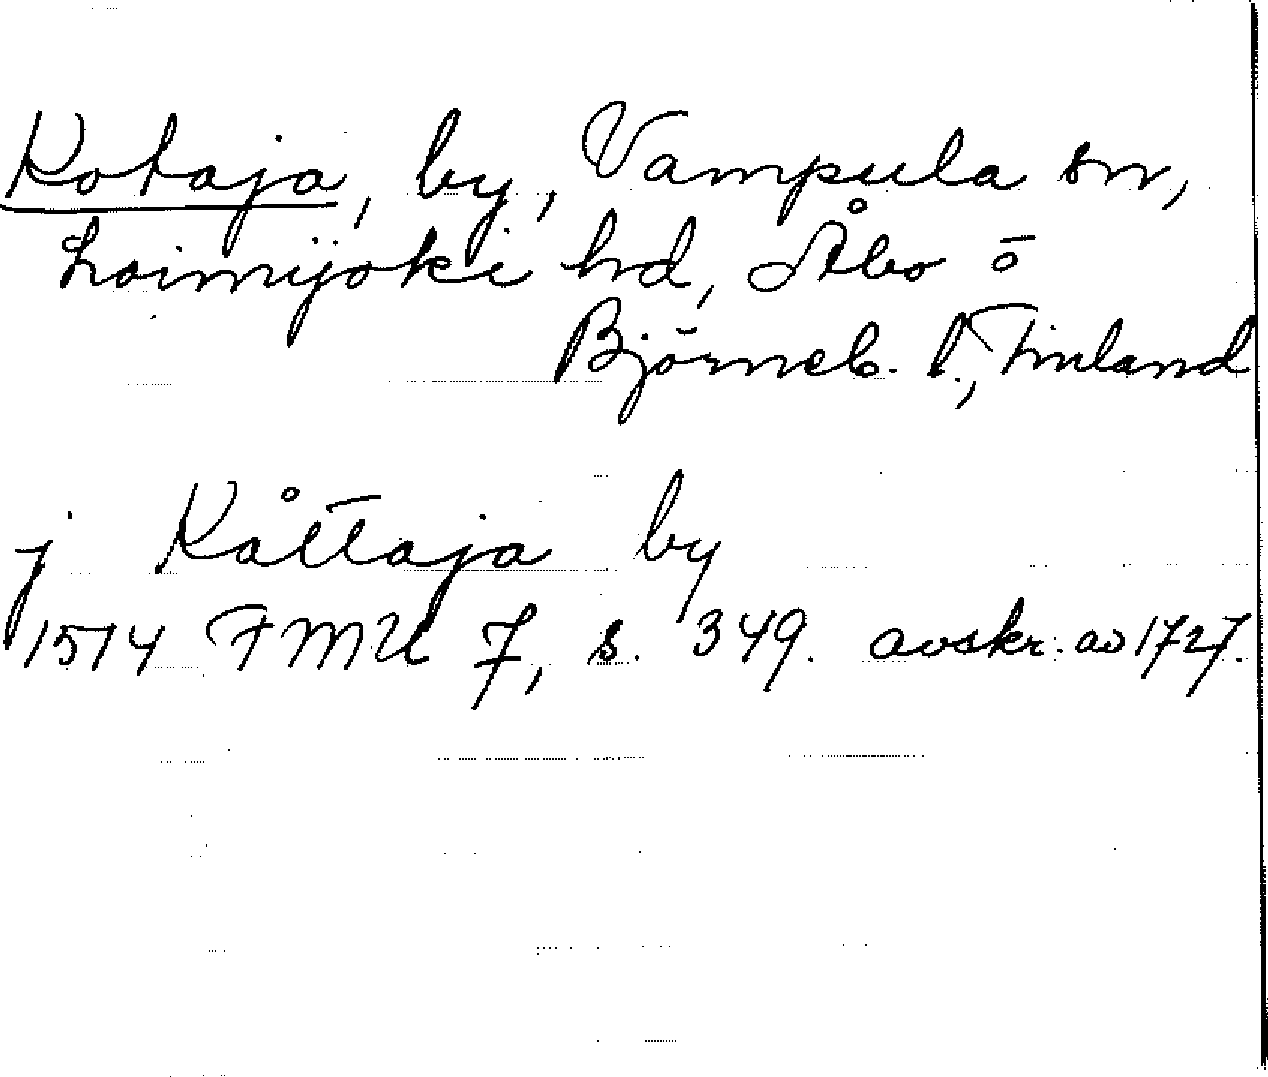 Kotaja, by, Vampula sn,
Loimijoki hd, Åbo o
Björneb. l., Finland
j Kåttaja by
1514 FMU 7, s. 349. avskr. av 1727.